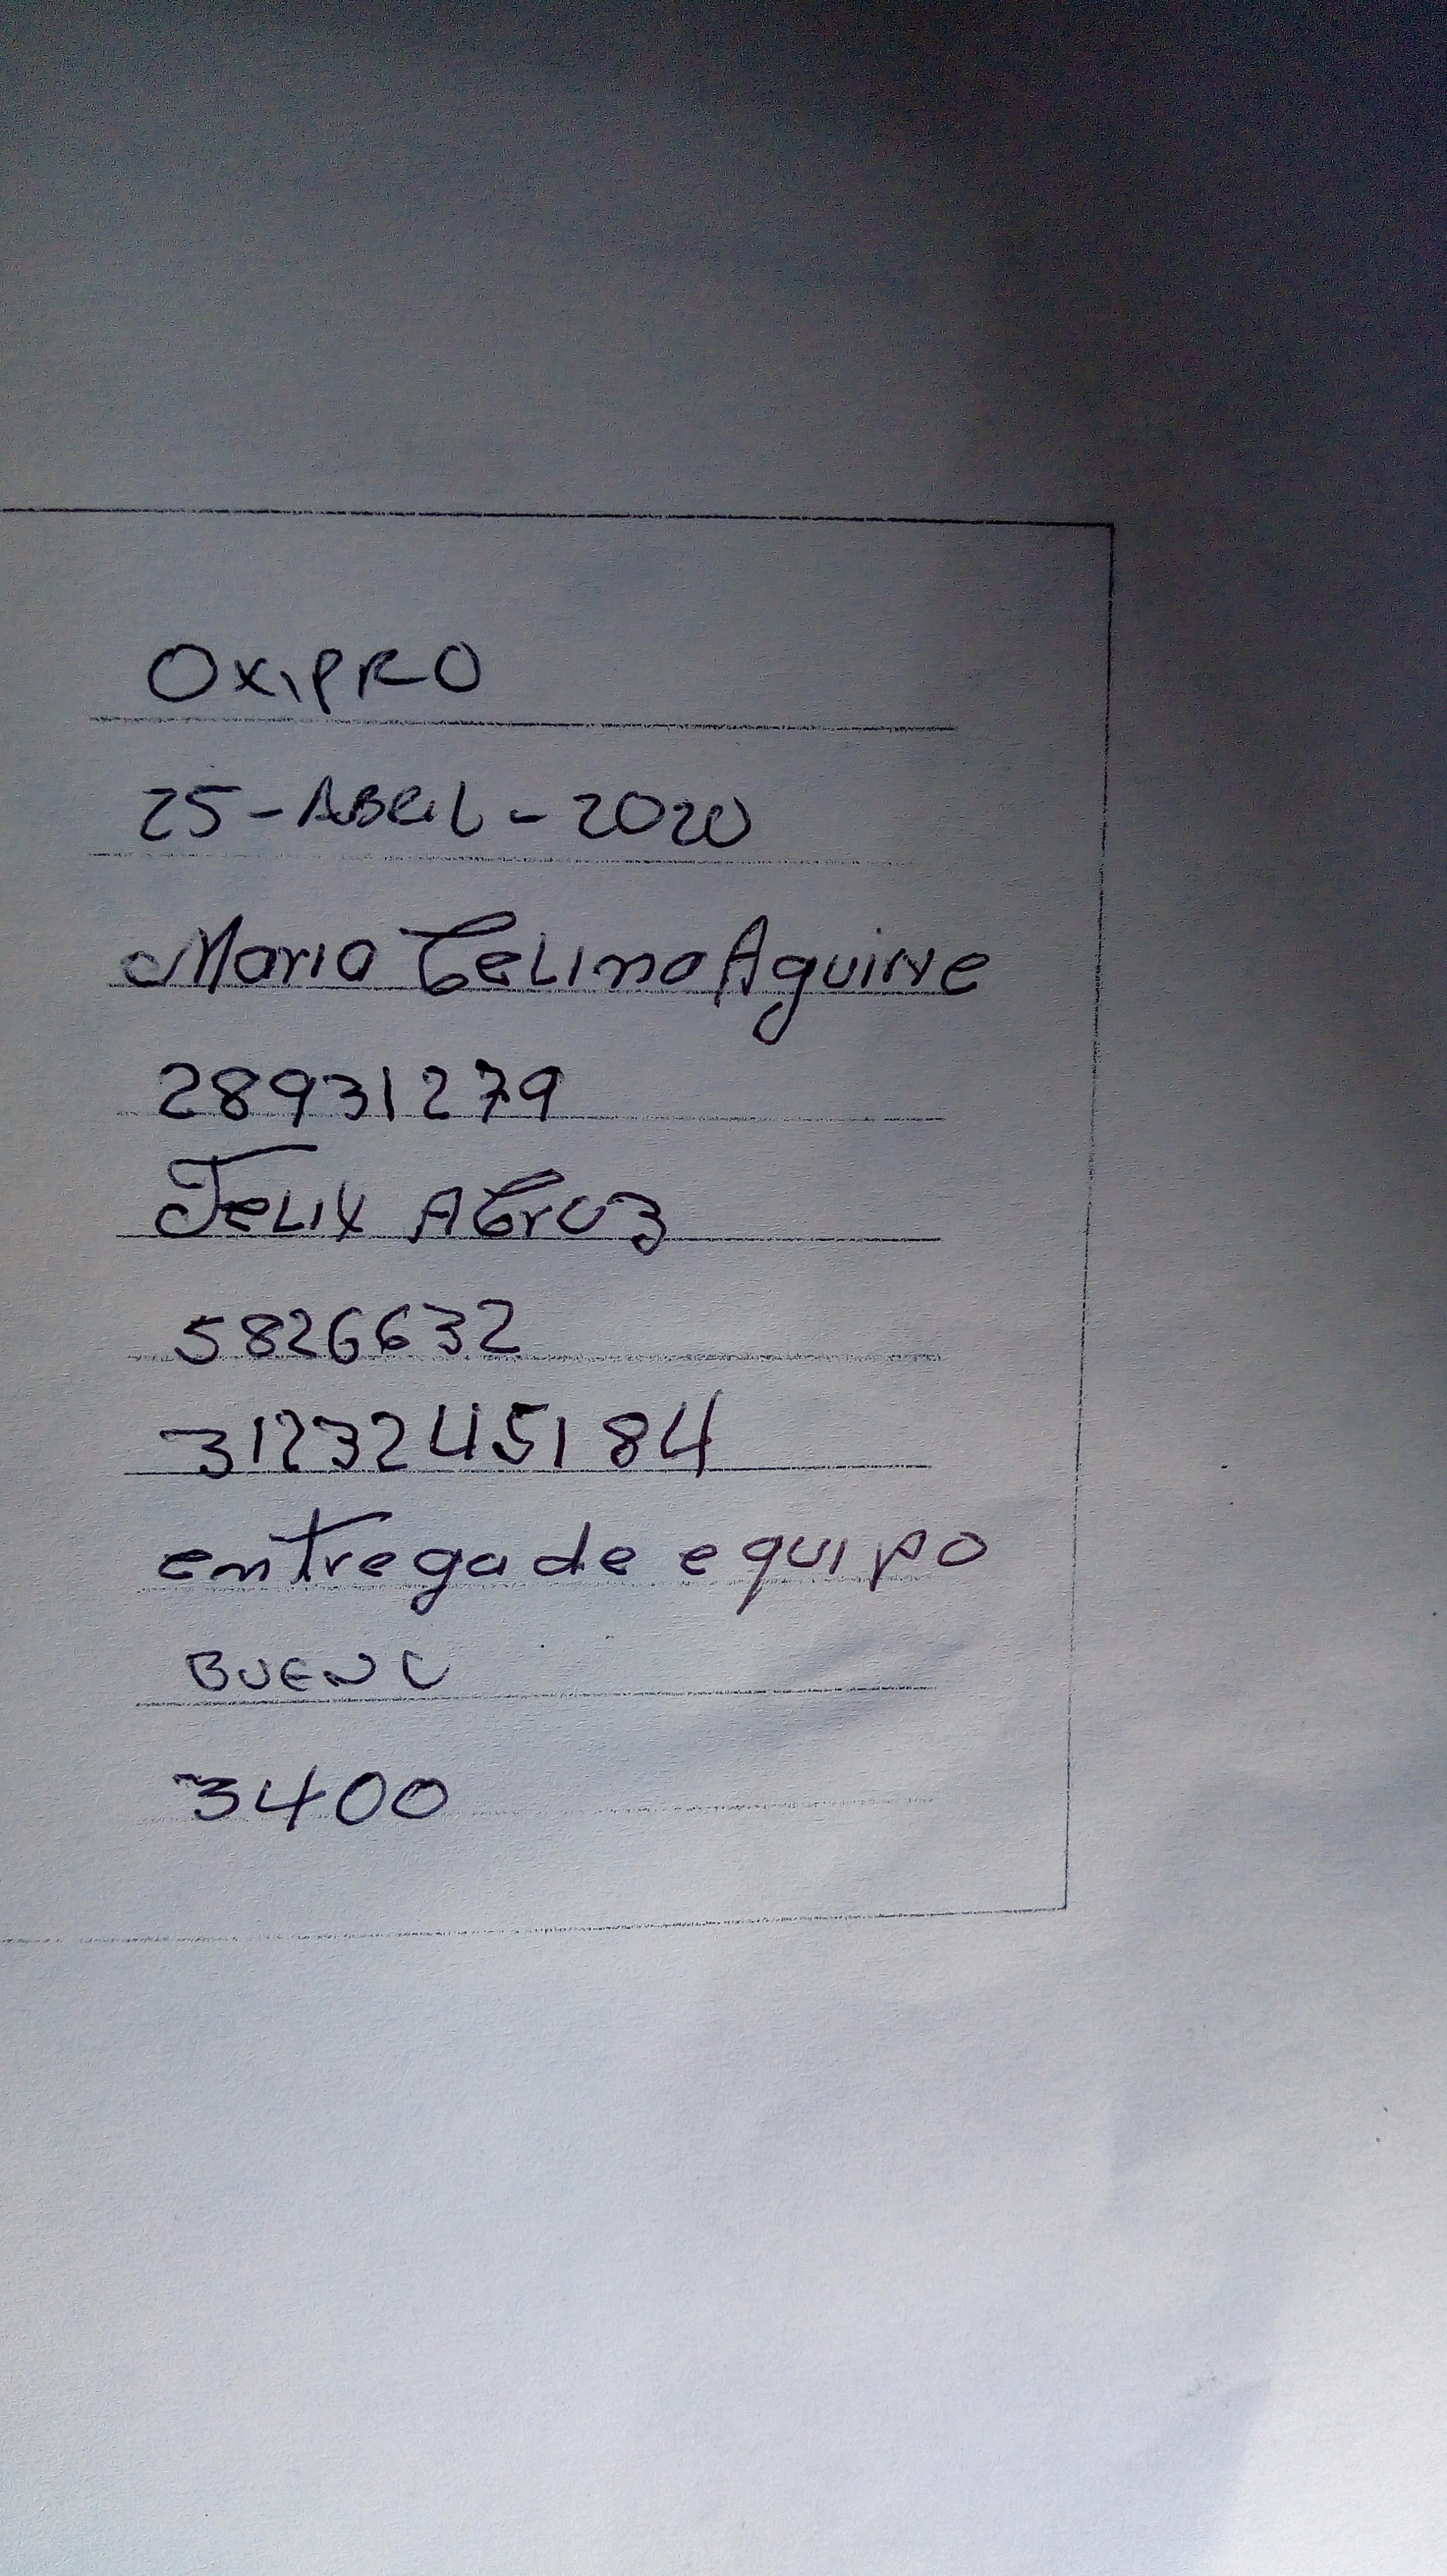 OXIPRO
25-ABRIL-2020
Maria Celina Aguirre
28931279
FELIX A Cruz
5826632
3123245184
entrega de equipo
BUENO
3400